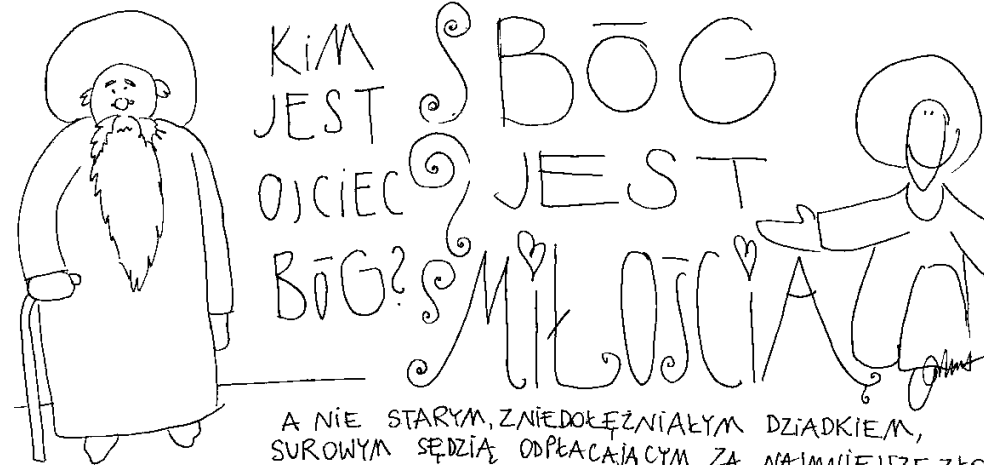 KiM
JEST
OJCIEC
BŌG?
BŌG
JEST
MiŁOŚCiĄ
A NiE STARYM, ZNIEDOŁĘŻNiAŁYM DZiADKiEM,
SUROWYM SĘDZIĄ ODPŁACAJĄCYM ZA NAJMNIEJSZE